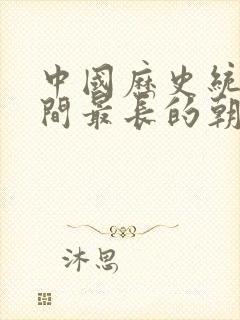 中國歷史統
間最長的朝
沐思